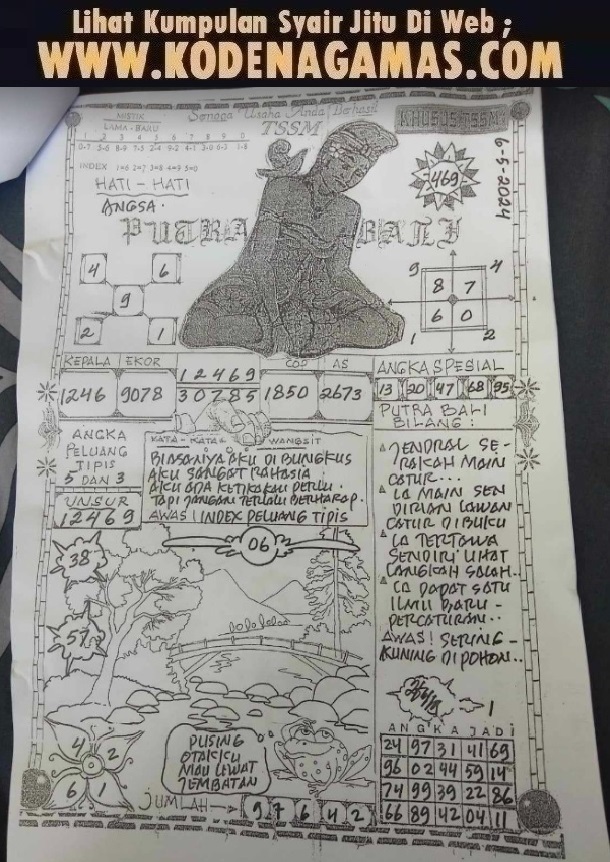 Lihat Kumpulan Syair Jitu Di Web ;
WWW.KODENAGAMAS.COM
Semoga Usaha Anda Berhasil
TSSM
KHUSUS TSSM
6-5-2024
MISTIK
LAMA - BARU
1 2 3 4 5 6 7 8 9 0
INDEX 1=6 2=7 3=8 4=9 5=0
HATI - HATI
ANGSA.
469
PUTRA BALI
4 6
9
2 1
9 4
8 7
6 0
1 2
KEPALA EKOR
1246 9078
12469
30785
COP AS
1850 2673
ANGKA SPESIAL
13 20 47 68 95
PUTRA BALI
BILANG :
ANGKA
PELUANG
TIPIS
5 DAN 3
UNSUR
12469
KATA - KATA WANGSIT
BIASANYA AKU DI BUNGKUS
AKU SANGAT RAHASIA :
AKU ADA KETIKA KAU PERLU.
TAPI JANGAN TERLALU BERHARAP.
AWAS ! INDEX PELUANG TIPIS
JENDRAL SE-
RAKAH MAIN
CATUR...
IA MAIN SEN
DIRIAN LAWAN
CATUR DI BUKU
IA TERTAWA
SENDIRI LIHAT
LANGKAH SALAH..
IA DAPAT SATU
ILMU BARU -
PERCATURAN..
AWAS ! SERING -
KUNING DI POHON..
06
38
57
4 2
6 1
PUSING
OTAKKU
MAU LEWAT
JEMBATAN
JUMLAH
9 7 6 4 2
1
ANGKA JADI
24 97 31 41 69
96 02 44 59 14
74 99 39 22 86
66 89 42 04 11